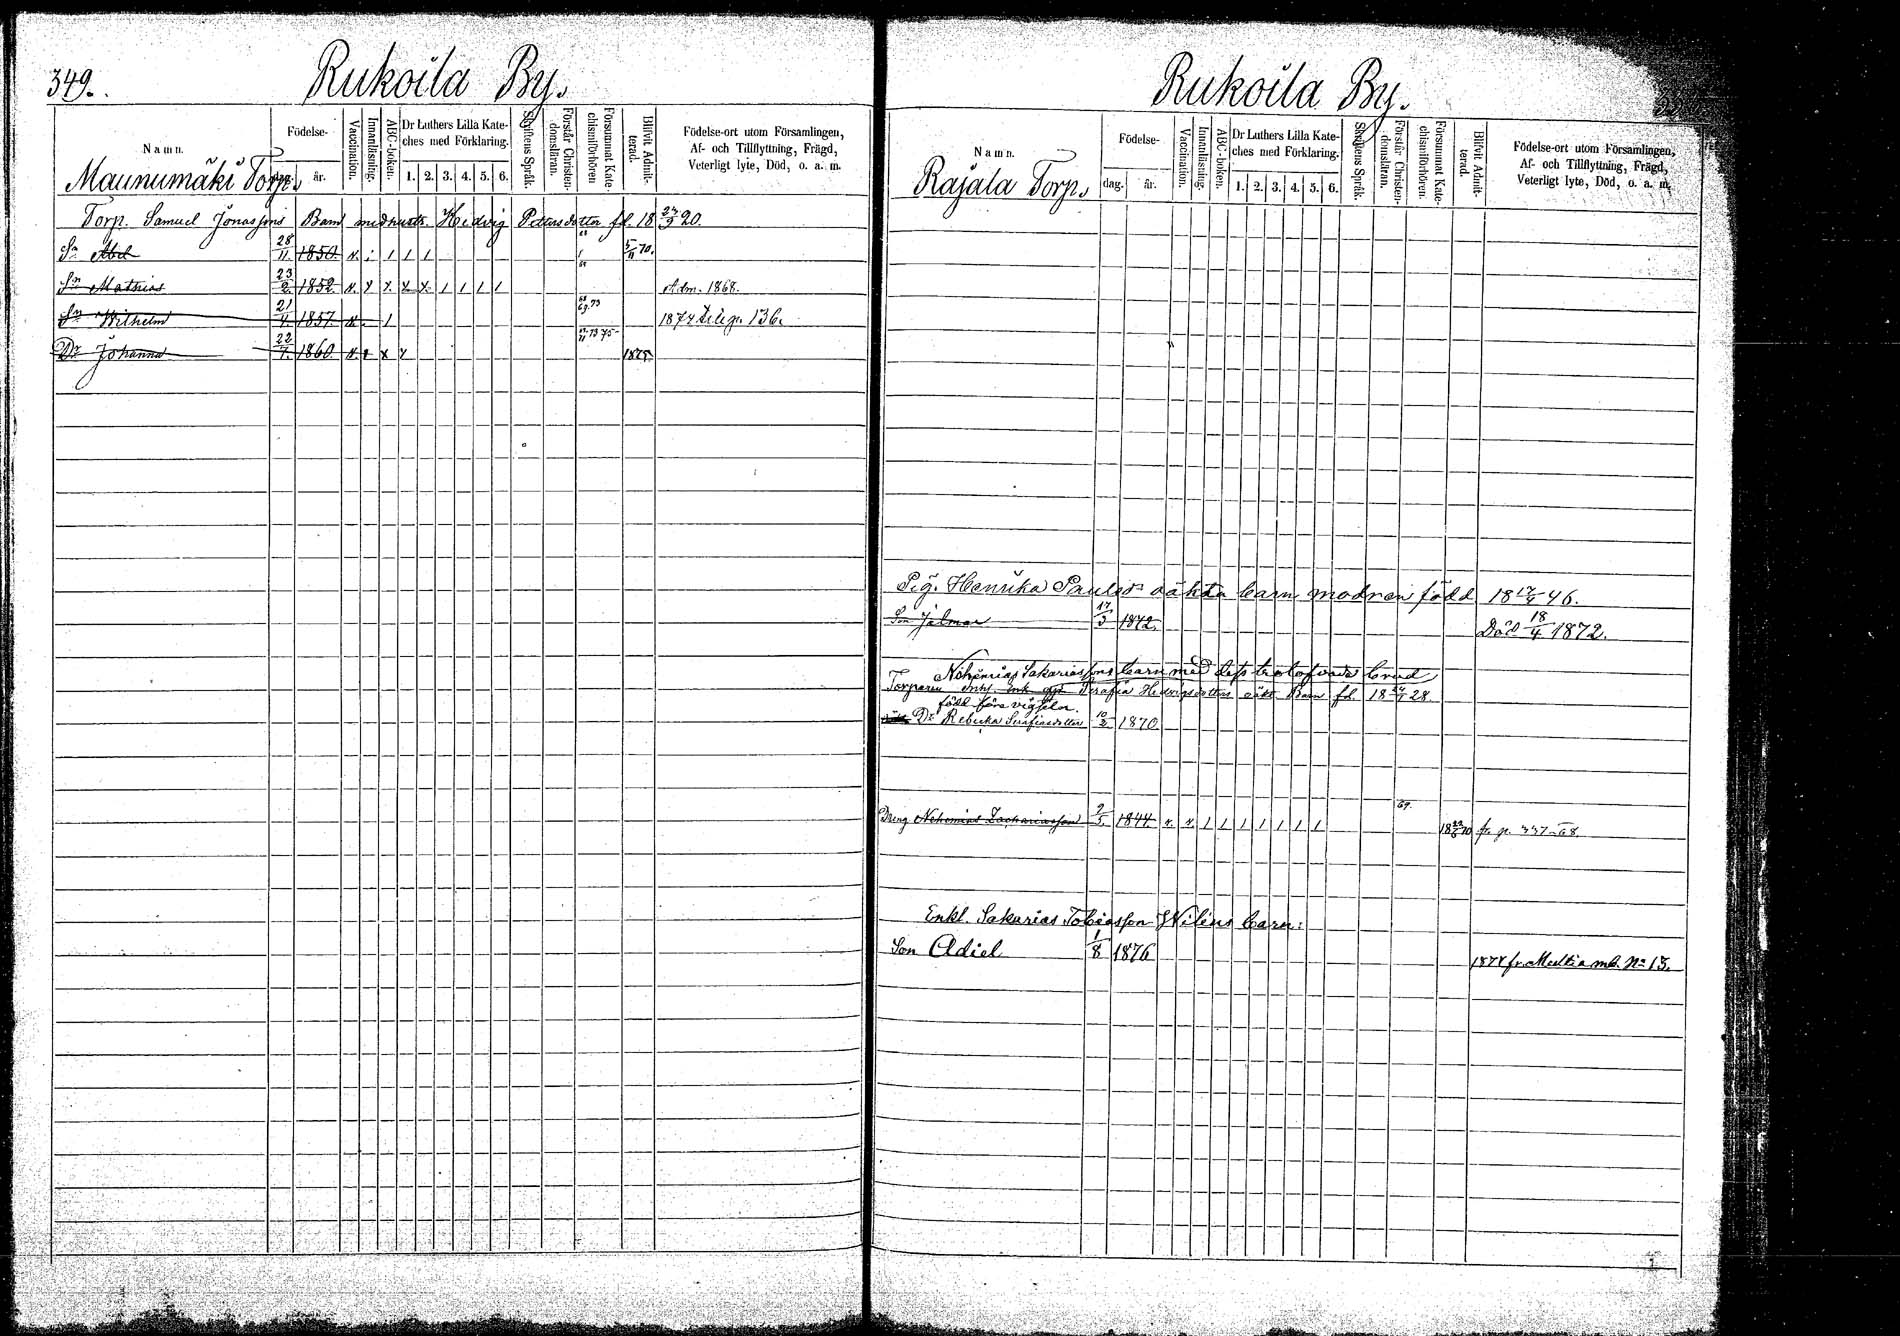 349.
Rukoila By.
Namn.
Födelse-
dag.
år.
Vaccination.
Innanläsning.
ABC-boken.
Dr Luthers Lilla Kate-
ches med Förklaring.
1. 2. 3. 4. 5. 6.
Skriftens Språk.
Förstår Christen-
domsläran.
Försummat Kate-
chismiförhören
Blifvit Admit-
terad.
Födelse-ort utom Församlingen,
Af- och Tillflyttning, Frägd,
Veterligt lyte, Död, o. a. m.
Maunumäki Torp.
Torp. Samuel Jonassons Barn med hustr. Hedvig Pettersdotter fd. 18 27/9 20.
Sn Abel 28/11 1850. 5/11 70.
Sn Mathias 23/2 1852. Adm. 1868.
Sn Wilhelm 21/4. 1857. 69.73 1874 till p. 136.
Dr Johanna 22/7. 1860. 1875
Rukoila By.
Namn.
Födelse-
dag.
år.
Vaccination.
Innanläsning.
ABC-boken.
Dr Luthers Lilla Kate-
ches med Förklaring.
1. 2. 3. 4. 5. 6.
Skriftens Språk.
Förstår Christen-
domsläran.
Försummat Kate-
chismiförhören.
Blifvit Admit-
terad.
Födelse-ort utom Församlingen,
Af- och Tillflyttning, Frägd,
Veterligt lyte, Död, o. a. m.
Rajala Torp.
Pig. Henrika Paulsd oäkta barn modren född 18 46.
Son Jalmar 17/3 1872. Död 18/4 1872.
Nehemias Sakariassons barn med dess trolofvade brud
Torparen Serafia Hedvigsdotters Barn fd. 18 28.
född före vigseln.
Dr Rebecka Serafiasdotter 10/2 1870.
Dreng Nehemias Zachariasson 2/5 1844. 69. fr p. 337-68
Enkl. Sakarias Tobiasson Wiléns barn:
Son Adiel 1/8 1876 1878 fr. Multia mb. No 13.